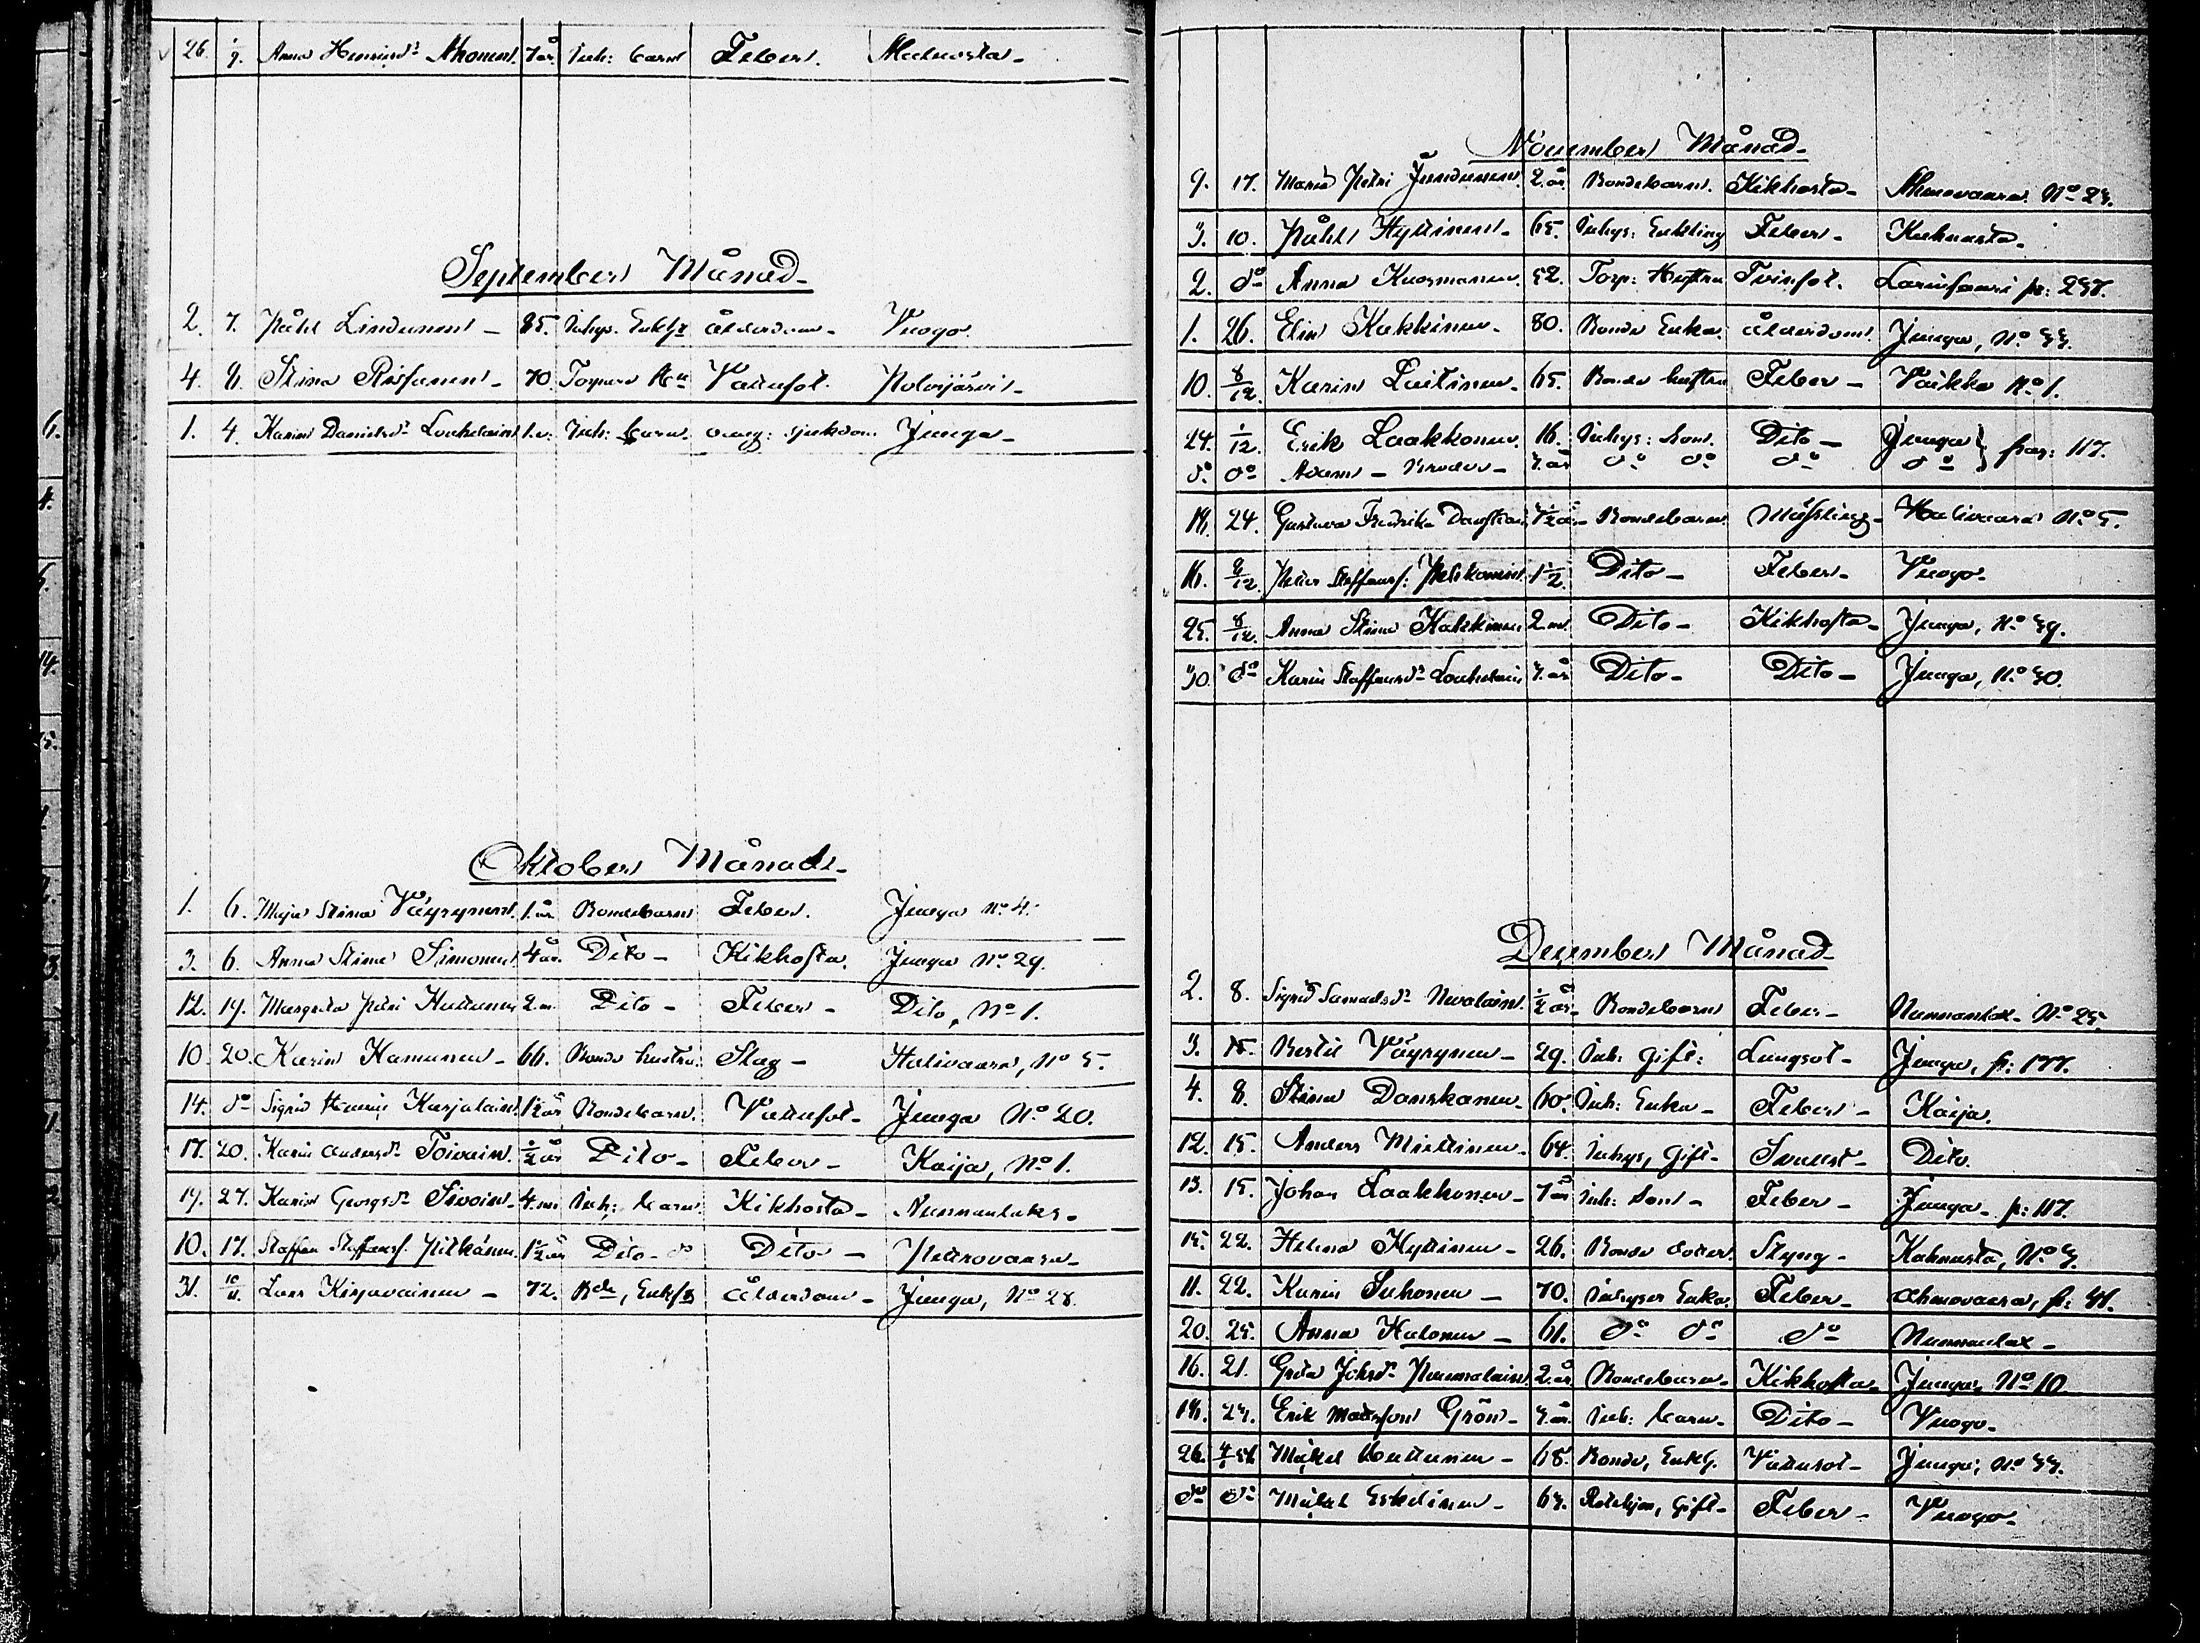 26. 1/9. Anna Henriksdr Ahonen. 7 år. Inh: barn Feber.
September Månad
2. 7. Påhl Lindunen 85. Inhys. Enkl: Ålderdom Vuogo.
4. 8. Stina Risanen 70. Vattusot. Polvijärvi
1. 4. Karin Danielsdr Inh: barn. Junga
Oktober Månad
1. 6. Maja Stina Väyrynen. 1. år Bondebarn Feber. Junga No 4.
3. 6. Anna Stina Simonen. 4 år. Dito Kikhosta. Junga No 29.
12. 19. Margreta Petri Huttunen 2. m. Dito Feber Dito, No 1.
10. 20. Karin Kamunen 66. Bonde hustru. Slag Halivaara, No 5.
14. do Sigrid Henrici Karjalain. 1½ år Bondebarn. Vattusot Junga No 20.
17. 20. Karin Andersdr Toivain. ½ år Dito Feber Kaija, No 1.
19. 27. Karin Georgsdr Sivoin. 4. m. Inh: barn Kikhosta
10. 17. Staffan Staffanss. Pitkänen 1½ år Dito do Dito Petrovaara
31. 10/11. Lars Kirjavainen 72. Bde, Enkl: Ålderdom Junga, No 28.
November Månad
9. 17. Maria Petri 2. år Bondebarn. Kikhosta Ahmovaara No 23.
3. 10. Påhl Hyttinen 65. Inhys: Enkling Feber
2. do Anna Kuosmanen 52. Torp: Hustru Tvinsot.
1. 26. Elin Kakkinen 80. Bonde Enka. Ålderdom. Junga, No 33.
10. 8/12. Karin Laitinen 65. Bonde hustru Feber Vaikko No 1.
24. 1/12. Erik Laakkonen 16. Inhys: son. Dito Junga pag: 117.
do do Adam Broder 3. år do do do do
18. 24. Gustava Fredrika Bondebarn Mässling Halivaara No 5.
16. 8/12. Petter Staffanss: 1½. Dito Feber Vuogo
25. 8/12. Anna Stina Kakkinen 2. m. Dito Kikhosta Junga, No 39.
30. do Karin Staffansdr 3. år Dito Dito Junga, No 30.
December Månad
2. 8. Sigrid Samuelsdr Nevalain. ½ år Bondebarn Feber Nunnanlax No 25.
3. 15. Bertil Väyrynen 29. Inh: gift: Lungsot Junga, p: 177.
4. 8. Stina Danskanen 60. Inh: Enka Feber Kaija.
12. 15. Anders Miettinen 64. Inhys, gift Dito.
13. 15. Johan Laakkonen 7 år Inh: Son Feber Junga p: 117.
15. 22. Helena Hyttinen 26. Bonde doter. Styng
11. 22. Karin Suhonen 70. Inhyses Enka. Feber Ahmovaara, p: 41.
20. 25. Anna Halonen 61. do do do Nunnanlax
16. 21. Greta Johsdr 2. år Bondebarn Kikhosta Junga, No 10
18. 23. Erik Matsson Grön 3. år. Inh: barn Dito Vuogo
26. Mikel Huttunen 68. Bonde, Enkl. Vattusot Junga, No 33.
do do Mikel Eskelinen 63. gift Feber Vuogo